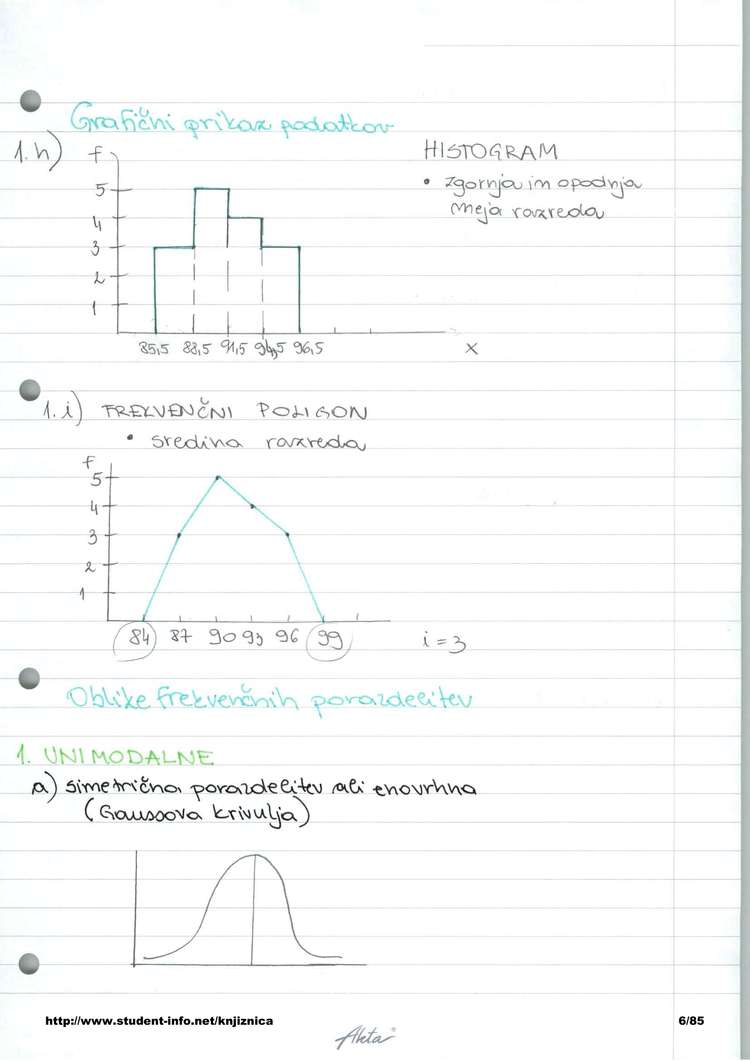 Grafični prikaz podatkov
1. h) f
HISTOGRAM
• zgornja in spodnja
meja razreda
5
4
3
2
1
85,5 88,5 91,5 94,5 96,5 x
1. i) FREKVENČNI POLIGON
• sredina razreda
f
5
4
3
2
1
84 87 90 93 96 99 i = 3
Oblike frekvenčnih porazdelitev
1. UNIMODALNE
a) simetrična porazdelitev ali enovrhna
(Gaussova krivulja)
http://www.student-info.net/knjiznica 6/85
Akta